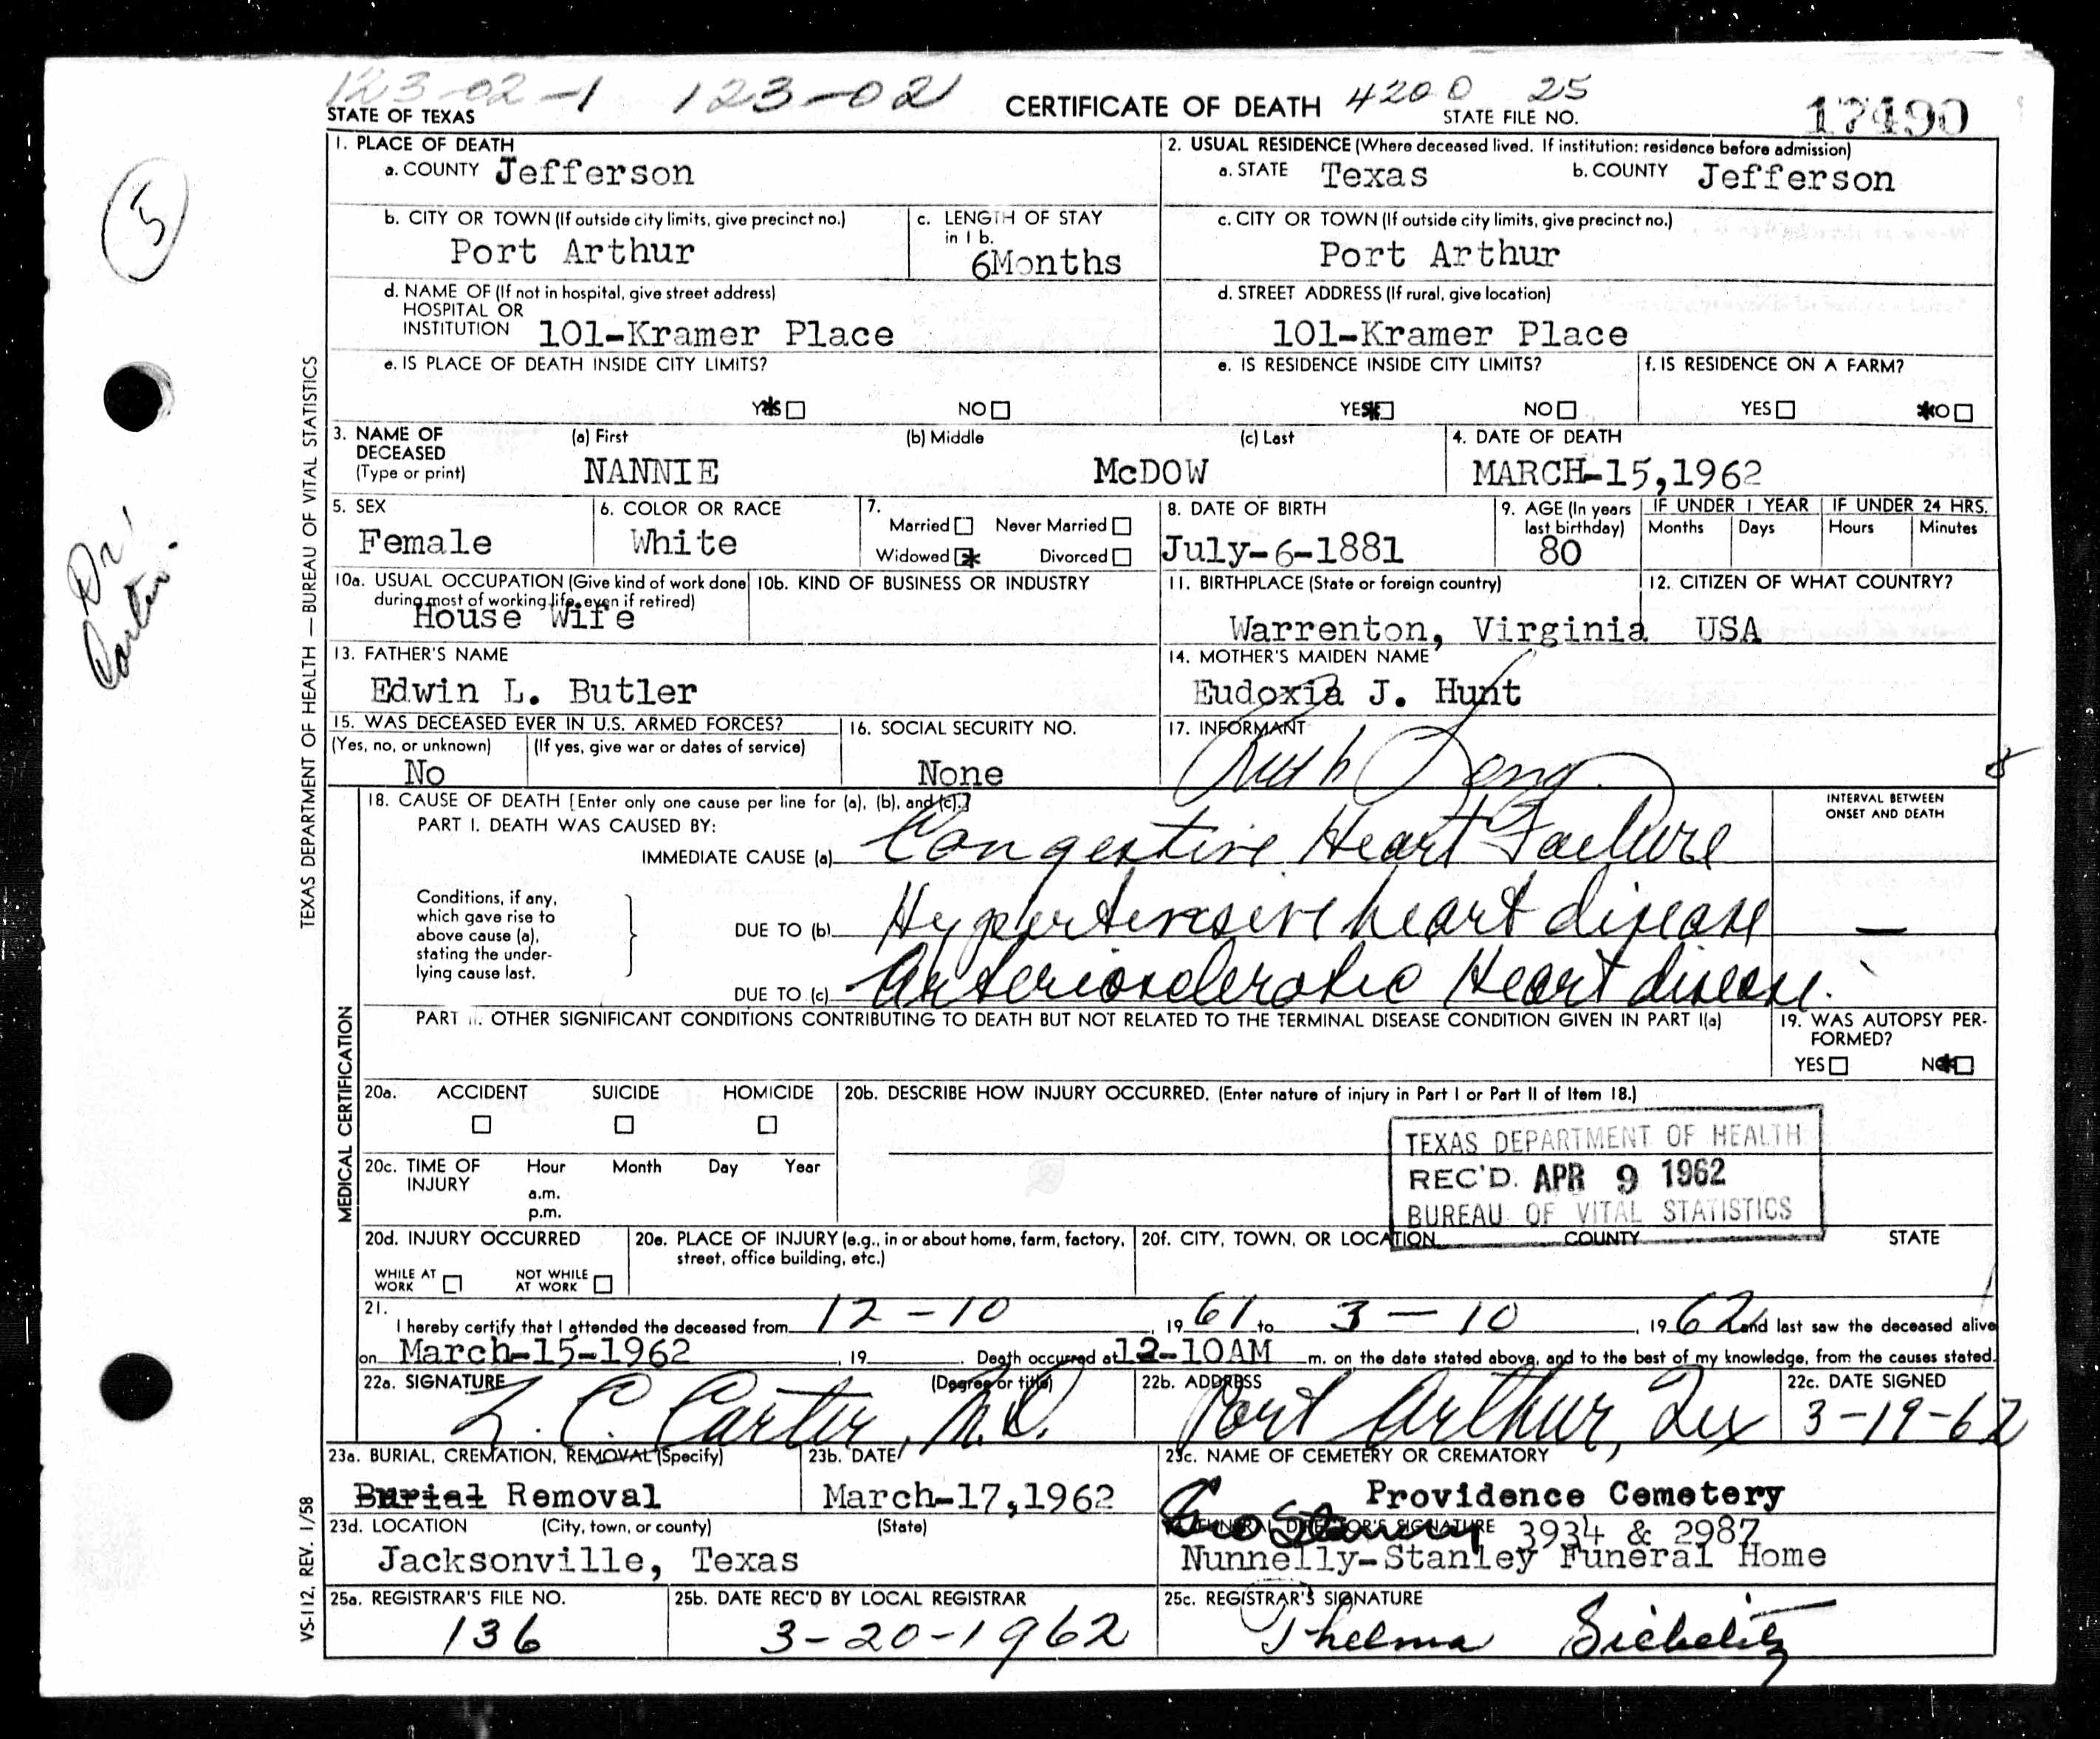 123-02-1 123-02 CERTIFICATE OF DEATH 4200 25
STATE OF TEXAS STATE FILE NO. 17490
1. PLACE OF DEATH
a. COUNTY Jefferson
2. USUAL RESIDENCE (Where deceased lived. If institution: residence before admission)
a. STATE Texas b. COUNTY Jefferson
b. CITY OR TOWN (If outside city limits, give precinct no.)
Port Arthur
c. LENGTH OF STAY
in 1 b.
6Months
c. CITY OR TOWN (If outside city limits, give precinct no.)
Port Arthur
d. NAME OF (If not in hospital, give street address)
HOSPITAL OR
INSTITUTION 101-Kramer Place
d. STREET ADDRESS (If rural, give location)
101-Kramer Place
e. IS PLACE OF DEATH INSIDE CITY LIMITS?
YES NO
e. IS RESIDENCE INSIDE CITY LIMITS?
YES NO
f. IS RESIDENCE ON A FARM?
YES NO
3. NAME OF
DECEASED
(Type or print)
(a) First (b) Middle (c) Last
NANNIE McDOW
4. DATE OF DEATH
MARCH-15,1962
5. SEX
Female
6. COLOR OR RACE
White
7.
Married Never Married
Widowed Divorced
8. DATE OF BIRTH
July-6-1881
9. AGE (In years
last birthday)
80
IF UNDER 1 YEAR
Months Days
IF UNDER 24 HRS.
Hours Minutes
10a. USUAL OCCUPATION (Give kind of work done
during most of working life, even if retired)
House Wife
10b. KIND OF BUSINESS OR INDUSTRY
11. BIRTHPLACE (State or foreign country)
Warrenton, Virginia
12. CITIZEN OF WHAT COUNTRY?
USA
13. FATHER'S NAME
Edwin L. Butler
14. MOTHER'S MAIDEN NAME
Eudoxia J. Hunt
15. WAS DECEASED EVER IN U.S. ARMED FORCES?
(Yes, no, or unknown) (If yes, give war or dates of service)
No
16. SOCIAL SECURITY NO.
None
17. INFORMANT
Ruth Long
18. CAUSE OF DEATH [Enter only one cause per line for (a), (b), and (c).]
PART I. DEATH WAS CAUSED BY:
INTERVAL BETWEEN
ONSET AND DEATH
IMMEDIATE CAUSE (a) Congestive Heart Failure
Conditions, if any,
which gave rise to
above cause (a),
stating the under-
lying cause last.
DUE TO (b) Hypertensive heart disease —
DUE TO (c) Arteriosclerotic Heart disease.
PART II. OTHER SIGNIFICANT CONDITIONS CONTRIBUTING TO DEATH BUT NOT RELATED TO THE TERMINAL DISEASE CONDITION GIVEN IN PART I(a)
19. WAS AUTOPSY PER-
FORMED?
YES NO
20a. ACCIDENT SUICIDE HOMICIDE
20b. DESCRIBE HOW INJURY OCCURRED. (Enter nature of injury in Part I or Part II of Item 18.)
TEXAS DEPARTMENT OF HEALTH
REC'D. APR 9 1962
BUREAU OF VITAL STATISTICS
20c. TIME OF
INJURY
Hour Month Day Year
a.m.
p.m.
20d. INJURY OCCURRED
WHILE AT
WORK
NOT WHILE
AT WORK
20e. PLACE OF INJURY (e.g., in or about home, farm, factory,
street, office building, etc.)
20f. CITY, TOWN, OR LOCATION COUNTY STATE
21.
I hereby certify that I attended the deceased from 12-10, 1961 to 3-10, 1962 and last saw the deceased alive
on March-15-1962, 19 . Death occurred at 12-10AM m. on the date stated above, and to the best of my knowledge, from the causes stated.
22a. SIGNATURE (Degree or title)
L. C. Carter, M.D.
22b. ADDRESS
Port Arthur, Tex
22c. DATE SIGNED
3-19-62
23a. BURIAL, CREMATION, REMOVAL (Specify)
Burial Removal
23b. DATE
March-17,1962
23c. NAME OF CEMETERY OR CREMATORY
Providence Cemetery
23d. LOCATION (City, town, or county) (State)
Jacksonville, Texas
24. FUNERAL DIRECTOR'S SIGNATURE 3934 & 2987
Nunnelly-Stanley Funeral Home
25a. REGISTRAR'S FILE NO.
136
25b. DATE REC'D BY LOCAL REGISTRAR
3-20-1962
25c. REGISTRAR'S SIGNATURE
Thelma
TEXAS DEPARTMENT OF HEALTH — BUREAU OF VITAL STATISTICS
MEDICAL CERTIFICATION
VS-112, REV. 1/58
5
Dr.
Carter.